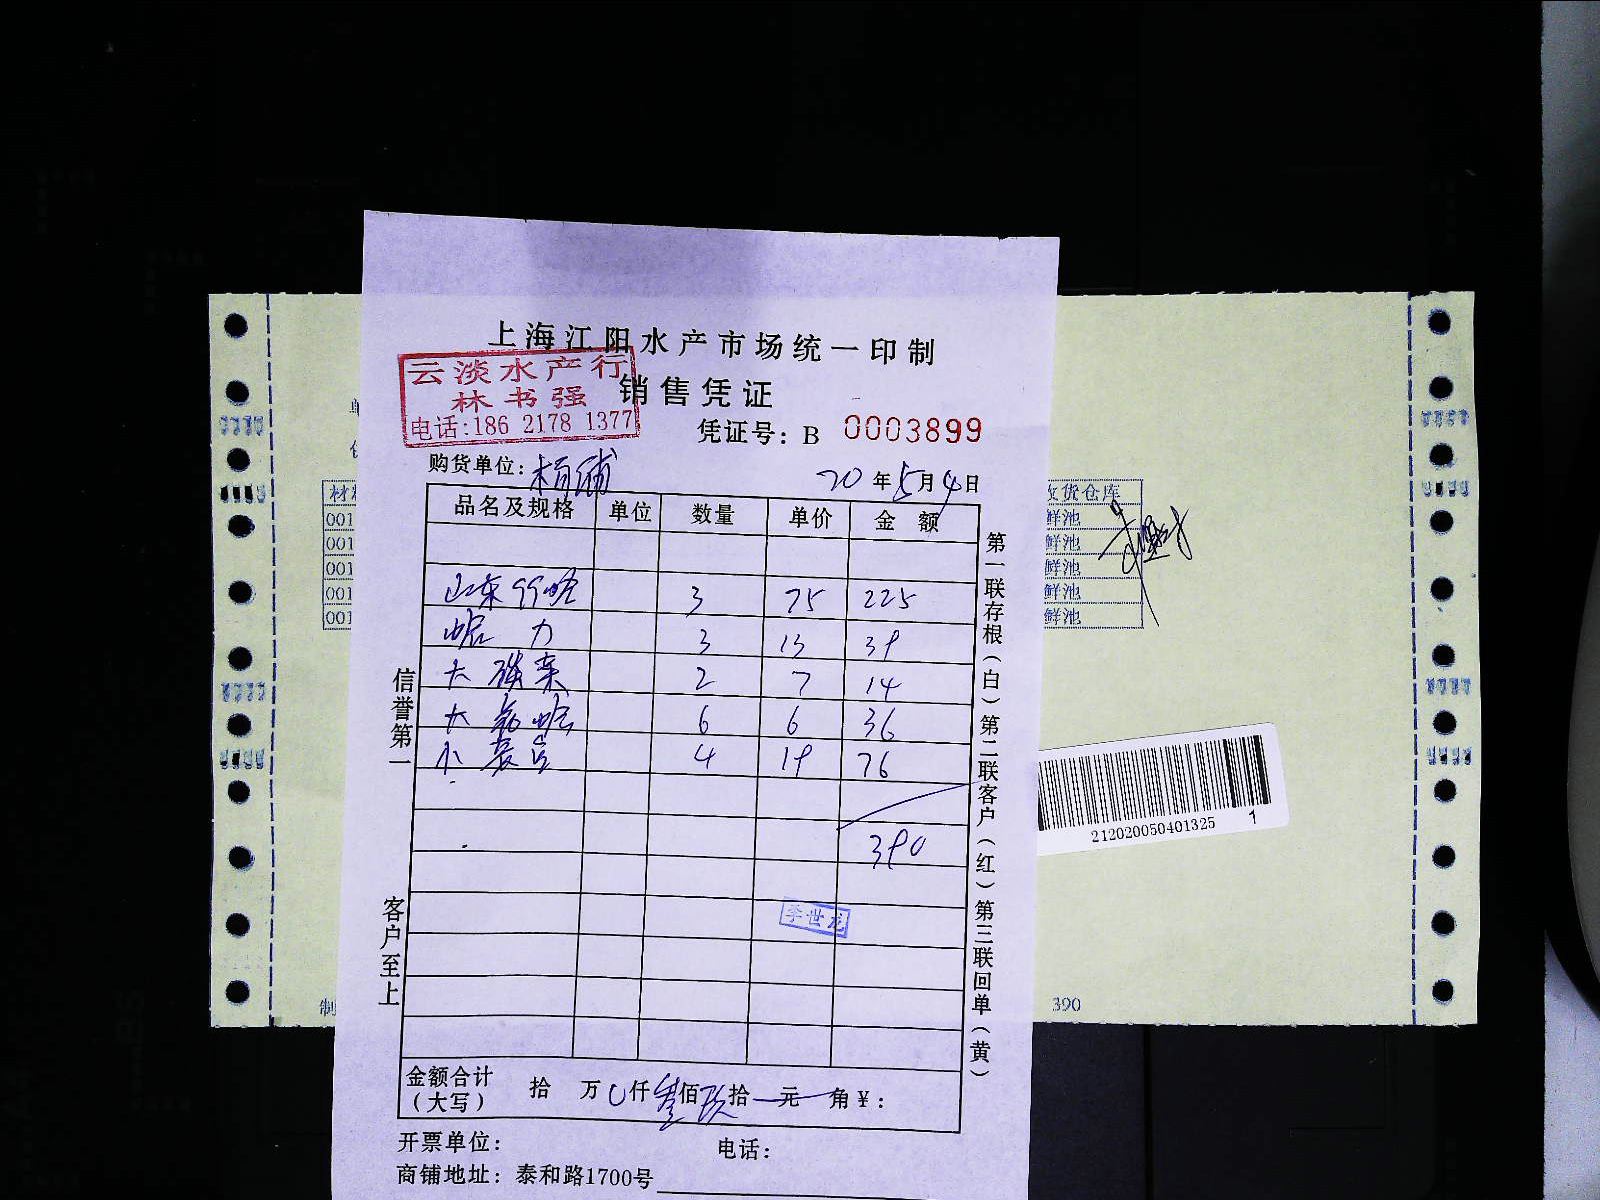 上海江阳水产市场统一印制
云淡水产行
林书强
电话:186 2178 1377
销售凭证
凭证号: B 0003899
购货单位: 杨浦 20年5月4日
品名及规格 单位 数量 单价 金额
山东 3 75 225
3 13 39
大 2 7 14
大 6 6 36
小 4 19 76
390
李世龙
金额合计(大写) 拾 万 0仟叁佰玖拾 元 角¥:
开票单位: 电话:
商铺地址: 泰和路1700号
信誉第一
客户至上
第一联存根(白)第二联客户(红)第三联回单(黄)
001
001
001
001
001
收货仓库
鲜池
鲜池
鲜池
鲜池
鲜池
212020050401325 1
制
390